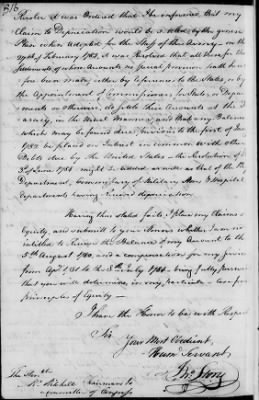 316
it was Ordered that
Claim to Depreciation would be settled by the general
Plan when adopted for the Staff of the Army — on the
of February 1782, it was Resolved that all those for the
Settlement of whose Accounts no special provision hath been
fore been made, either by reference to the States, or by
the Appointment of Commissioners, for State, or Depart-
ments or otherwise, do settle their Accounts at the
in the Usual Manner, and that any Balance
which may be found due, previous to the first of Jany
1782 be placed on Interest in common with other
Debts due by the United States — the Resolution of
3d of June 1784 might be added
Department, Commissary of Military Stores & Hospital
departments having received depreciation.
Having thus stated facts, I place my Claim on
Equity, and submit to your Honors whether I am not
intitled to receive the Balance of my Account to the
5th August 1780, and a compensation for my service
from to the — being fully persuaded
that you will determine in my particular case from
principles of Equity —
I have the Honor to be with Respect
Sir,
Your Most Obedient,
Humb Servant
Jno Story
The Honble
Mr Mitchell Chairman to
a Committee of Congress